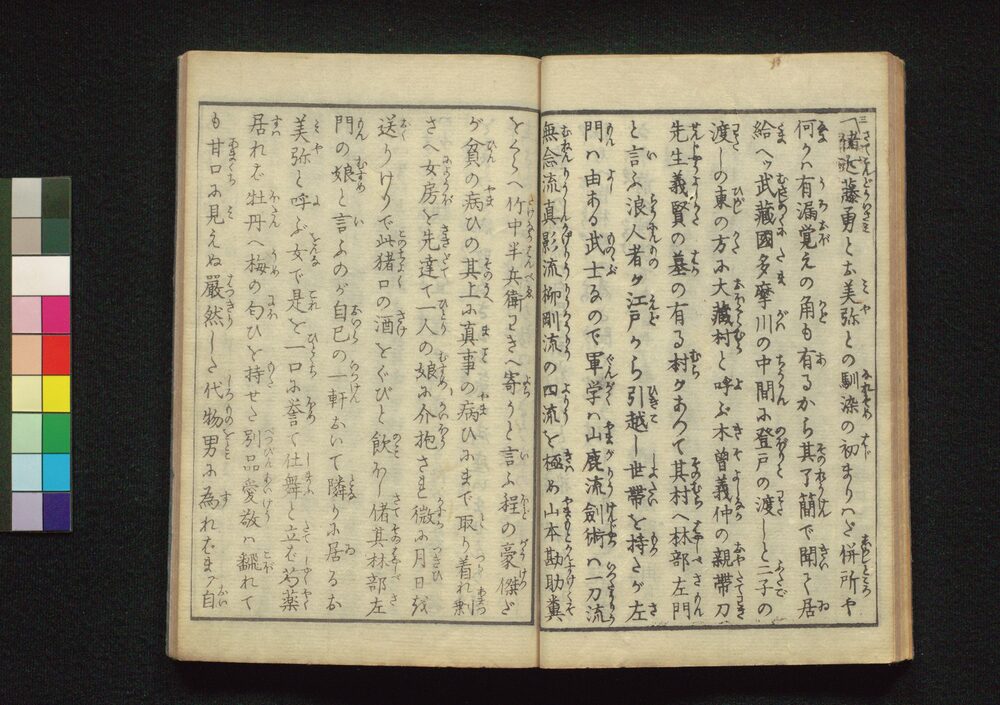 三「偖近藤勇と云美弥との馴染の初まりハだ併所や
何かハ有漏覚えの角も有るから其了簡で聞て居
給へッ武藏國多摩川の中間に登戸の渡しと二子の
渡しの東の方に大藏村と呼ぶ木曽義仲の親帯刀
先生義賢の墓の有る村がありて其村へ林部左門
と言ふ浪人者が江戸から引越し世帯を持たが左
門ハ由ある武士なので軍学ハ山鹿流劍術ハ一刀流
無念流真影流柳剛流の四流を極め山本勘助糞
をくらへ竹中半兵衛わきへ寄うと言ふ程の豪傑だ
が貧の病ひの其上に真事の病ひにまで取り着れ剰
さへ女房を先達て一人の娘に介抱され微に月日を
送りけりで此猪口の酒をぐびと飲ほし偖其林部左
門の娘と言ふのが自己の一軒おいて隣りに居るお
美弥と呼ぶ女で是を一口に誉て仕舞と立ば芍薬
居れば牡丹へ梅の匂ひを持せた別品愛敬ハ飜れて
も甘口に見えぬ嚴然した代物男に為ればまア自